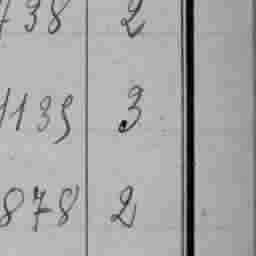 738 2
1139 3
878 2